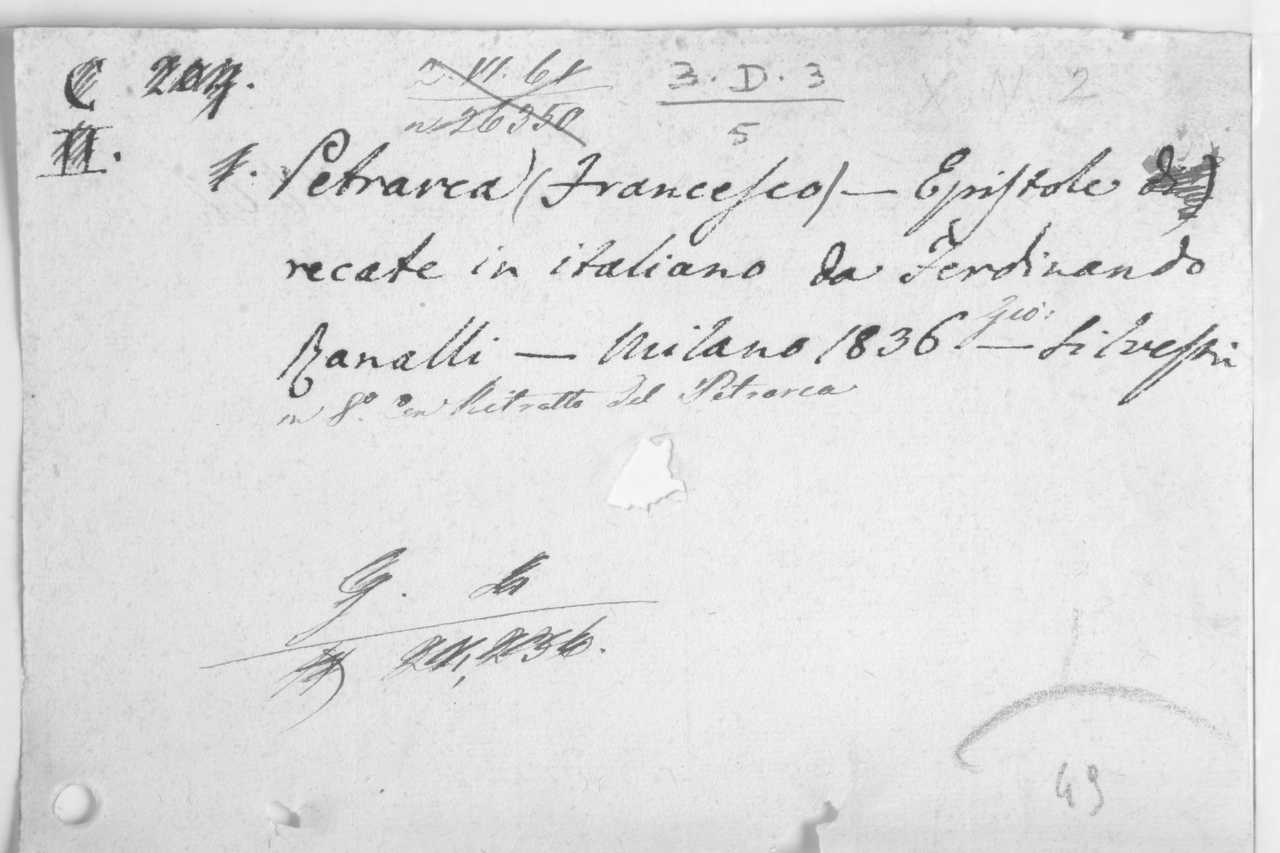 C 207. 3 . D . 3 X. N. 2
n 26350 5
II. 1. Petrarca (Francesco) — Epistole di
recate in italiano da Ferdinando
Ranalli — Milano 1836 — Gio: Silvestri
in 8.º con Ritratto del Petrarca
G.
24,236.
49